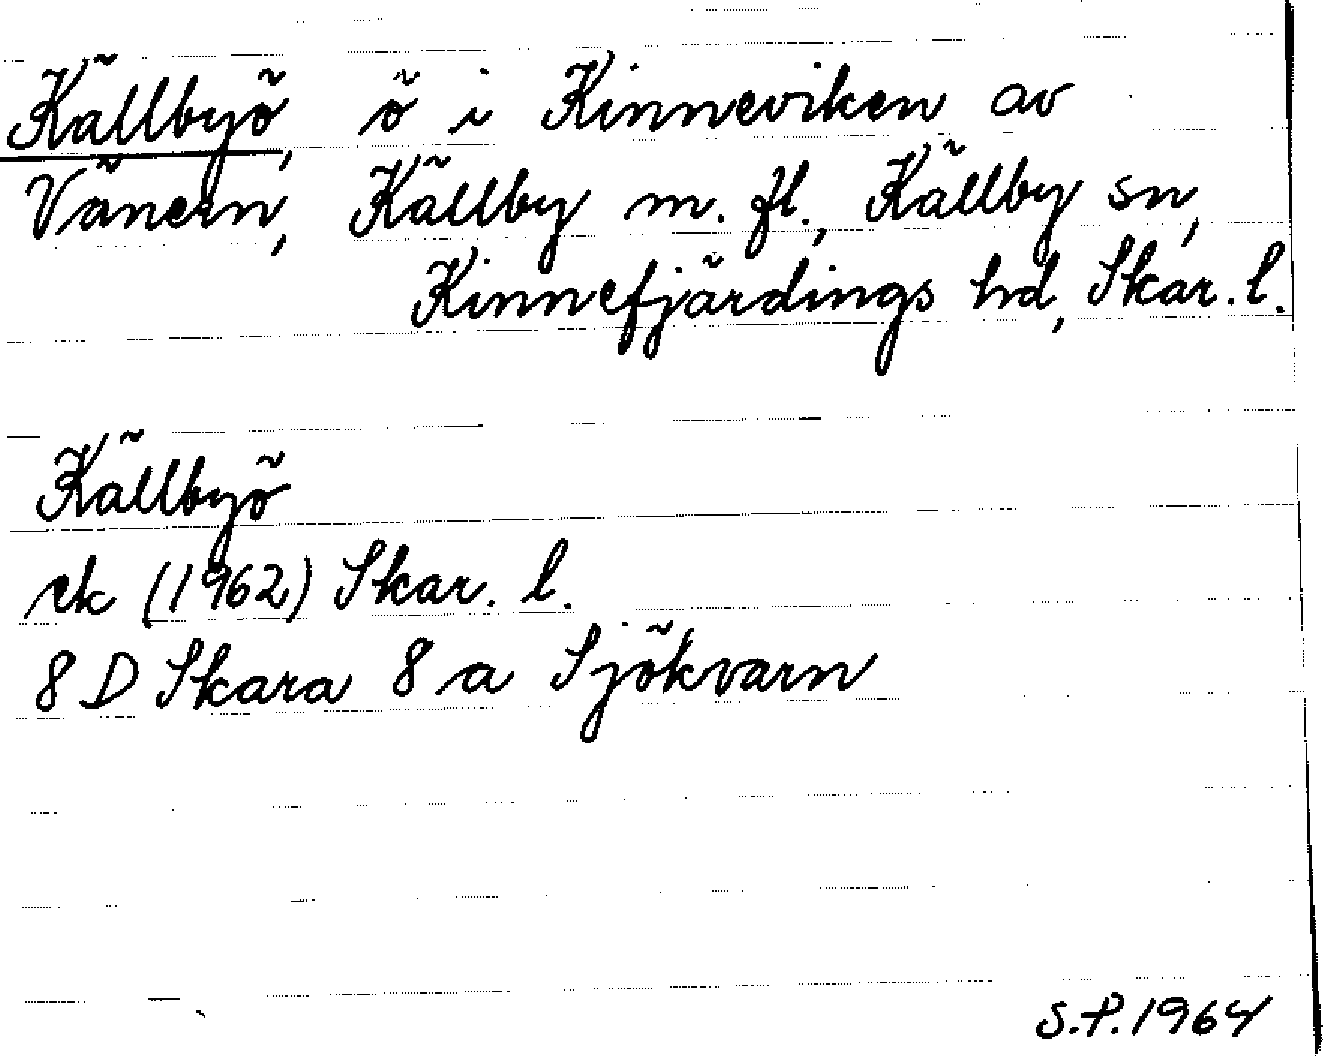 Källbyö, ö i Kinneviken av
Vänern, Källby m. fl., Källby sn,
Kinnefjärdings hd, Skar. l.
Källbyö
ek (1962) Skar. l.
8 D Skara 8 a Sjökvarn
S.P. 1964